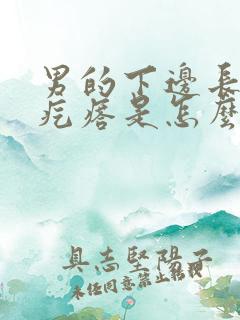 男的下邊長
疙瘩是怎麼
具志堅陽子
未经同意禁止转载